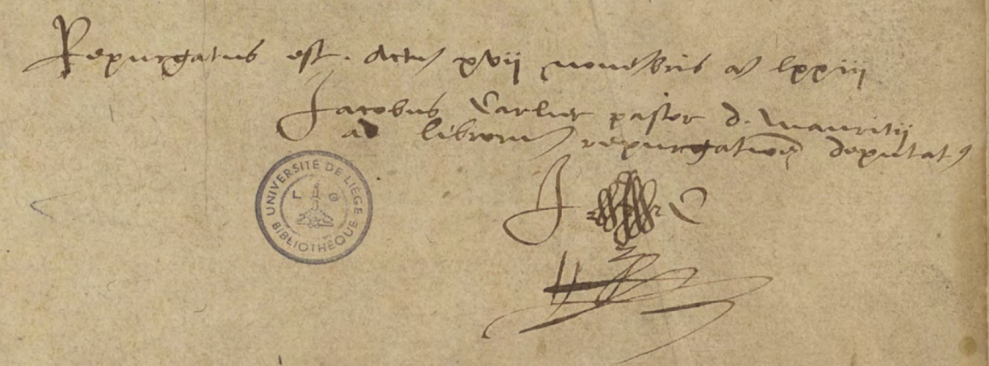 Repurgatus est. Actu xvii nouebris ao lxxiii
Jacobus Carlier pastor d. Mauritij
ad librorum repurgationē deputat9
UNIVERSITÉ DE LIÈGE
BIBLIOTHÈQUE
L G
J C